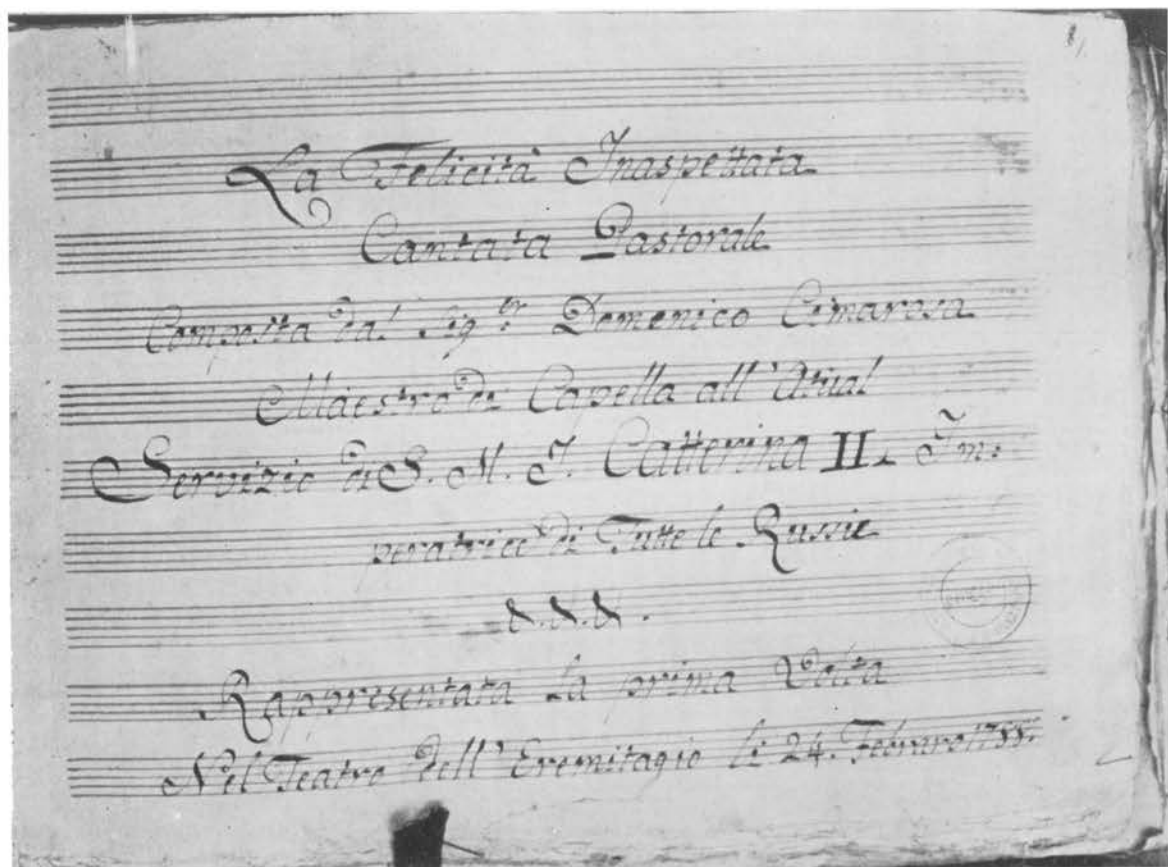 1,
La Felicità Inaspettata
Cantata Pastorale
Composta dal Sig.r Domenico Cimarosa
Maestro di Capella all' Attual
Servizio di S. M. I. Catterina II. Im:
peratrice di Tutte le Russie
&.&.& .
Rappresentata la prima Volta
Nel Teatro dell' Eremitagio li 24. Febraro 1788.